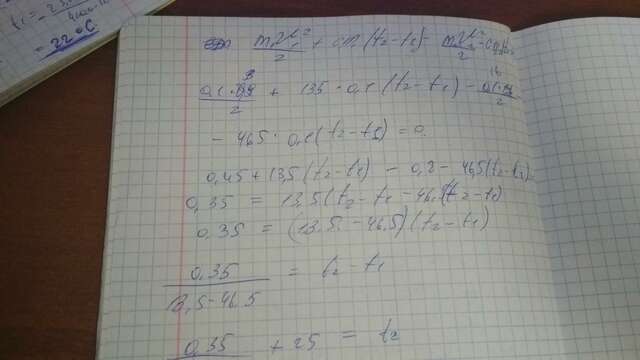 t₁ =
= 22°C
mv₁²/2 + cm(t₂-t₁) - mv²/2 - cm
0,1·9/2 + 135 · 0,1(t₂-t₁) - 0,1·16/2
- 465 · 0,1(t₂-t₁) = 0
0,45 + 13,5(t₂-t₁) - 0,8 - 46,5(t₂-t₁)
0,35 = 13,5(t₂-t₁ - 46,5(t₂-t₁)
0,35 = (13.5 - 46.5)(t₂-t₁)
0,35/13,5-46.5 = t₂-t₁
0,35 + 25 = t₂